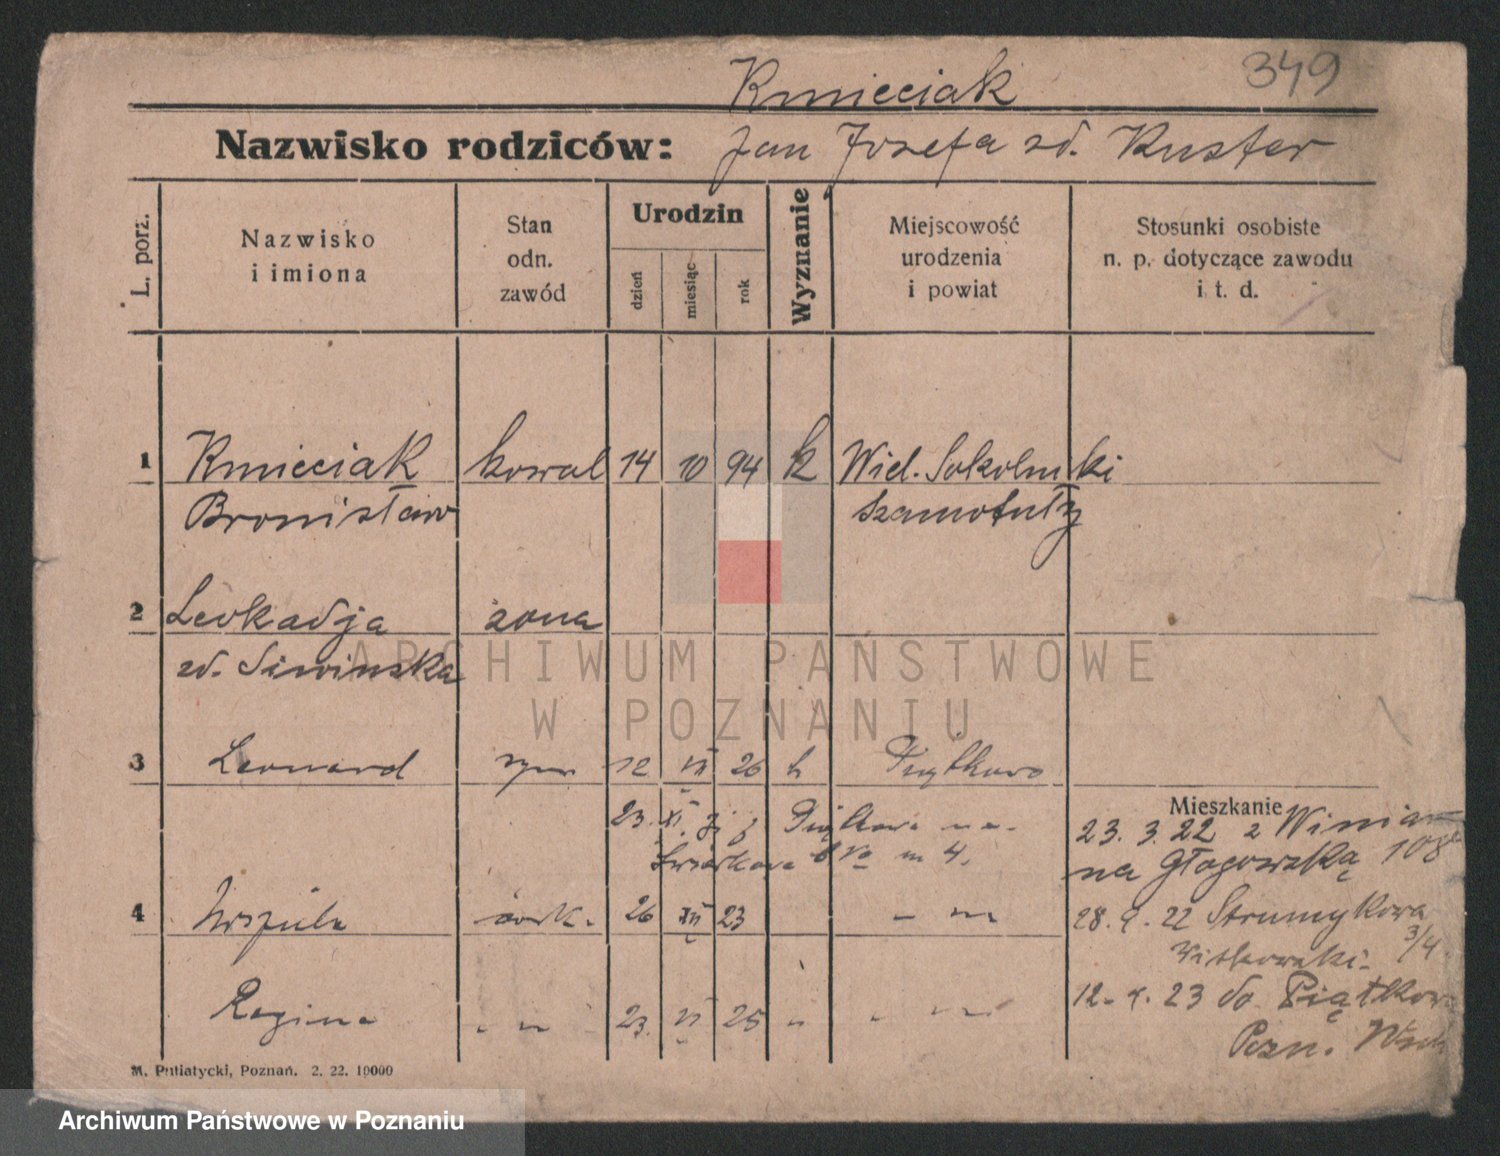 349
Kmieciak
Nazwisko rodziców: Jan Jozefa zd. Kuster
L. porz.
Nazwisko
i imiona
Stan
odn.
zawód
Urodzin
dzień
miesiąc
rok
Wyznanie
Miejscowość
urodzenia
i powiat
Stosunki osobiste
n. p. dotyczące zawodu
i t. d.
1 Kmieciak kowal 14 10 94 k Wiel. Sokolniki
Bronisław Szamotuły
2 Leokadja żona
zd. Siwinska
3 Leonard syn 12 VII 26 k Piątkowo
Mieszkanie
23. XI
23. 3. 22 z Winiar
m 4.
na Głogowską 108
4 Urszula córk. 26 XII 23 - " -
28. 9. 22 Strumykowa
3/4
Witkowski.
Regina - " - 23. VI 25 " - " -
12. 4. 23 do Piątkow
Pozn. Wsch
M. Putiatycki, Poznań. 2. 22. 10000
ARCHIWUM PAŃSTWOWE
W POZNANIU
Archiwum Państwowe w Poznaniu